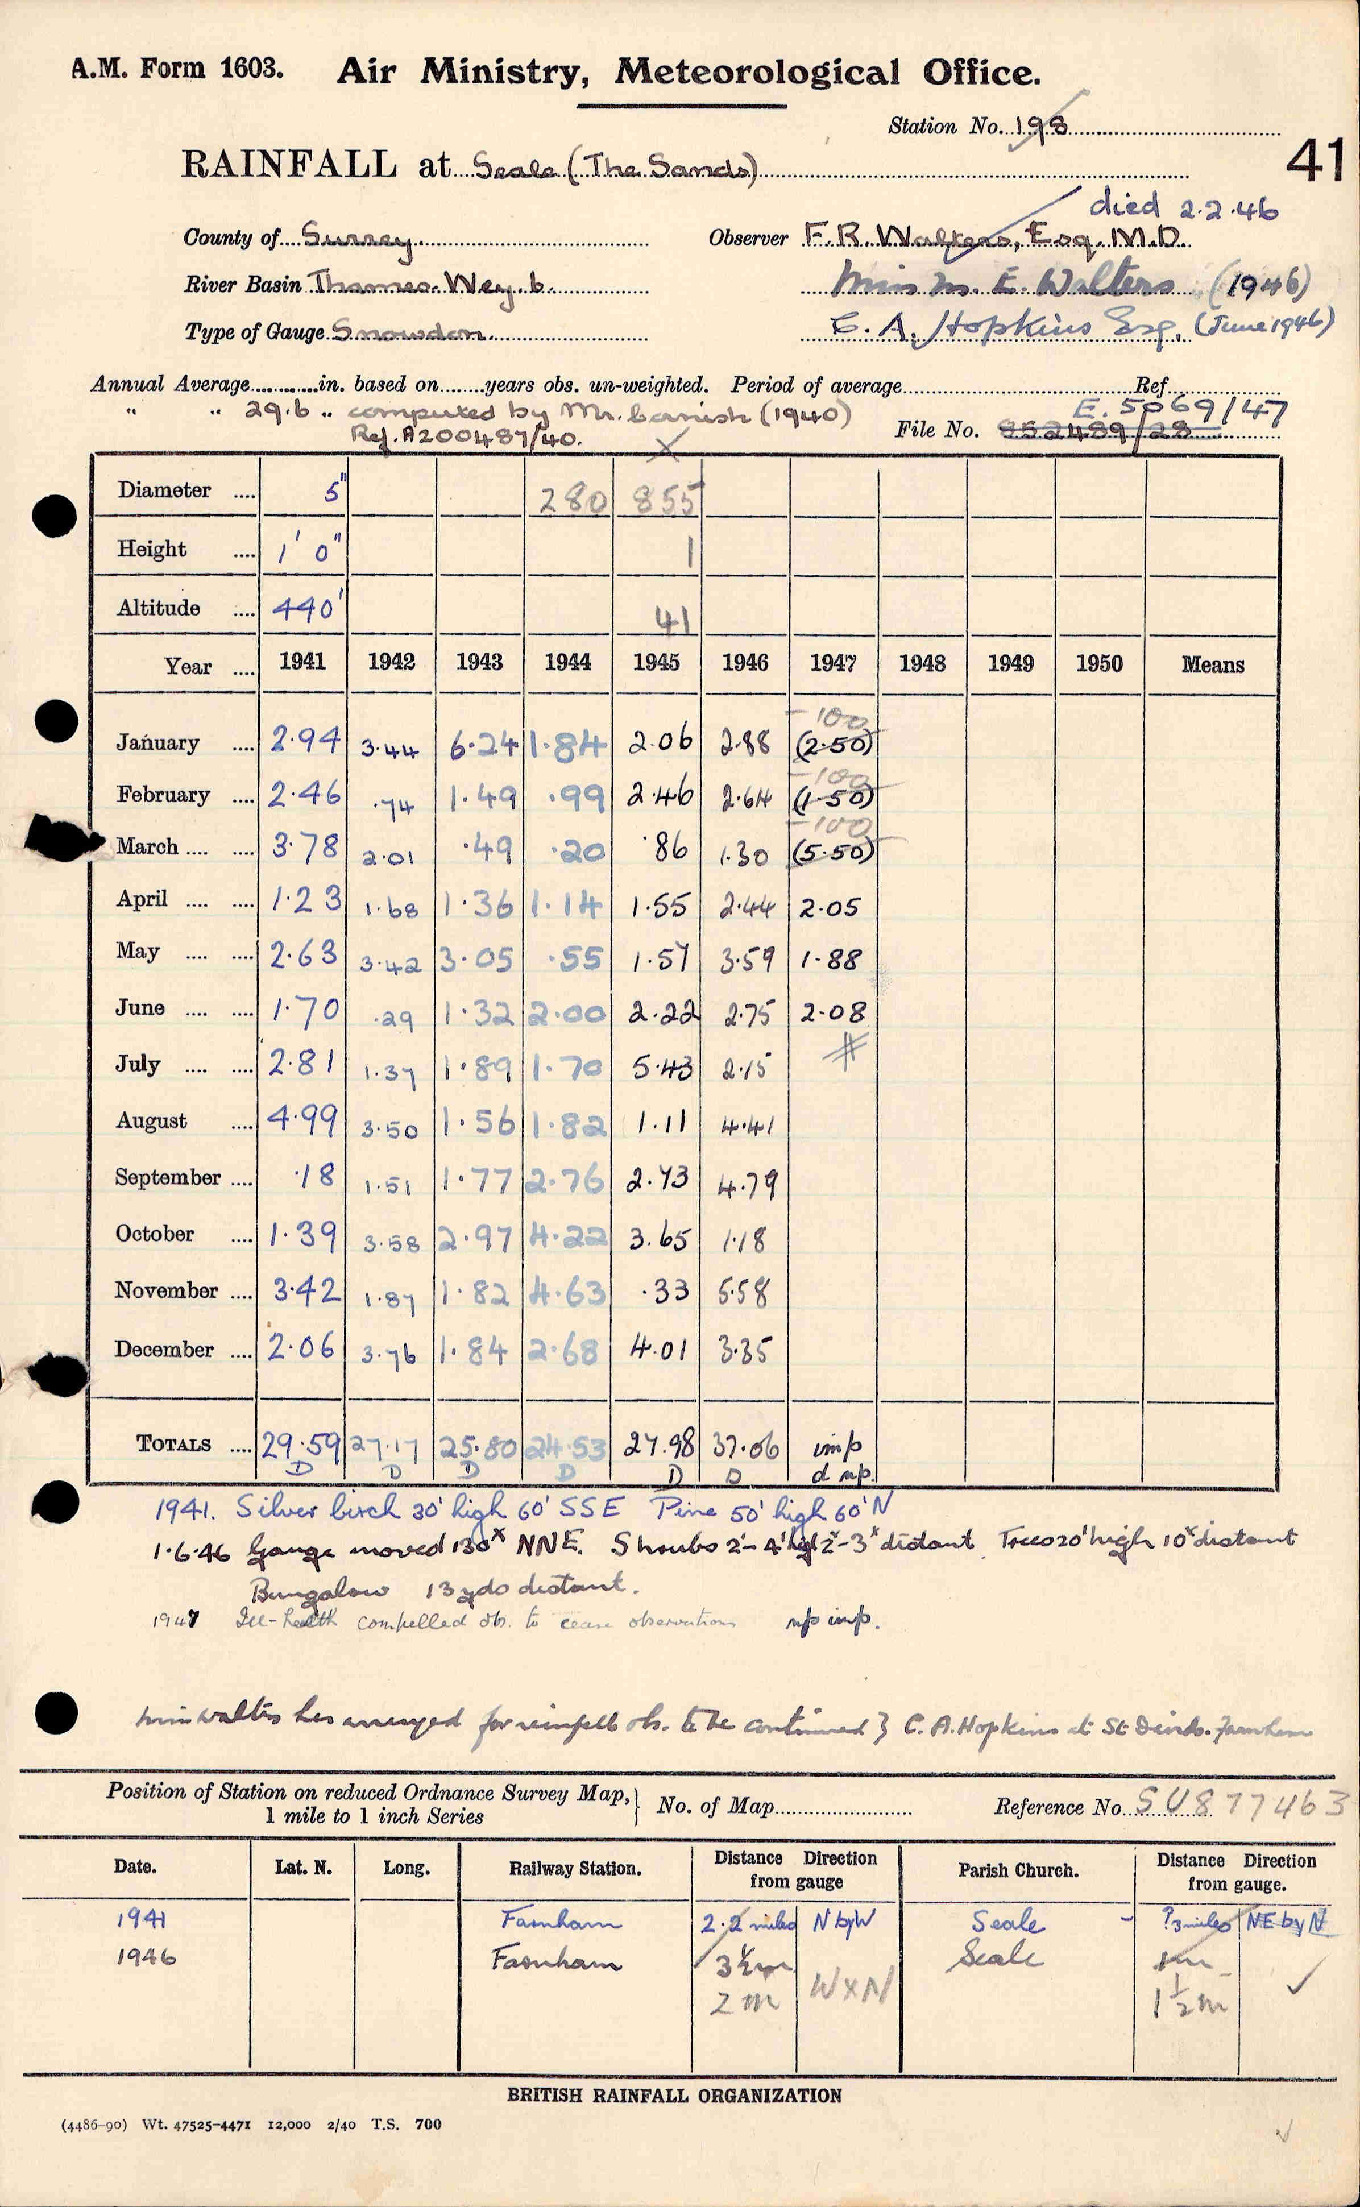 A.M. Form 1603. Air Ministry, Meteorological Office.
Station No. 198
41
RAINFALL at Seale (The Sands)
died 2.2.46
County of Surrey Observer F.R. Walters, Esq. M.D.
River Basin Thames. Wey. b. Miss M. E. Walters (1946)
Type of Gauge Snowdon. C. A. Hopkins Esq. (June 1946)
Annual Average in. based on years obs. un-weighted. Period of average Ref
" " 29.6 " computed by Mr. Cornish (1940) E. 5069/47
Ref. A200487/40. File No. 852489/28
X
Diameter 5" 280 855
Height 1' 0" 1
Altitude 440' 41
Year 1941 1942 1943 1944 1945 1946 1947 1948 1949 1950 Means
-100
January 2.94 3.44 6.24 1.84 2.06 2.88 (2.50)
-100
February 2.46 .74 1.49 .99 2.46 2.64 (1.50)
-100
March 3.78 2.01 .49 .20 .86 1.30 (5.50)
April 1.23 1.68 1.36 1.14 1.55 2.44 2.05
May 2.63 3.42 3.05 .55 1.57 3.59 1.88
June 1.70 .29 1.32 2.00 2.22 2.75 2.08
July 2.81 1.37 1.89 1.70 5.43 2.15 #
August 4.99 3.50 1.56 1.82 1.11 4.41
September .18 1.51 1.77 2.76 2.73 4.79
October 1.39 3.58 2.97 4.22 3.65 1.18
November 3.42 1.87 1.82 4.63 .33 5.58
December 2.06 3.76 1.84 2.68 4.01 3.35
TOTALS 29.59 27.17 25.80 24.53 27.98 37.06 imp
D D D D D D d np.
1941. Silver birch 30' high 60' SSE Pine 50' high 60' N
1.6.46 Gauge moved 130x NNE. Shrubs 2'-4' high 2x-3x distant. Trees 20' high 10x distant
Bungalow 13 yds distant.
1947 Ill-health compelled obs. to cease observations np imp.
Miss Walters has arranged for rainfall obs. to be continued by C. A. Hopkins at St Farnham
Position of Station on reduced Ordnance Survey Map, 1 mile to 1 inch Series } No. of Map Reference No. SU877463
Date. Lat. N. Long. Railway Station. Distance Direction from gauge Parish Church. Distance Direction from gauge.
1941 Farnham 2.2 miles N by W Seale - ?3 miles NE by N
1946 Farnham 3½m Seale 1m
2m W x N 1½m ✓
BRITISH RAINFALL ORGANIZATION
(4486-90) Wt. 47525-4471 12,000 2/40 T.S. 700